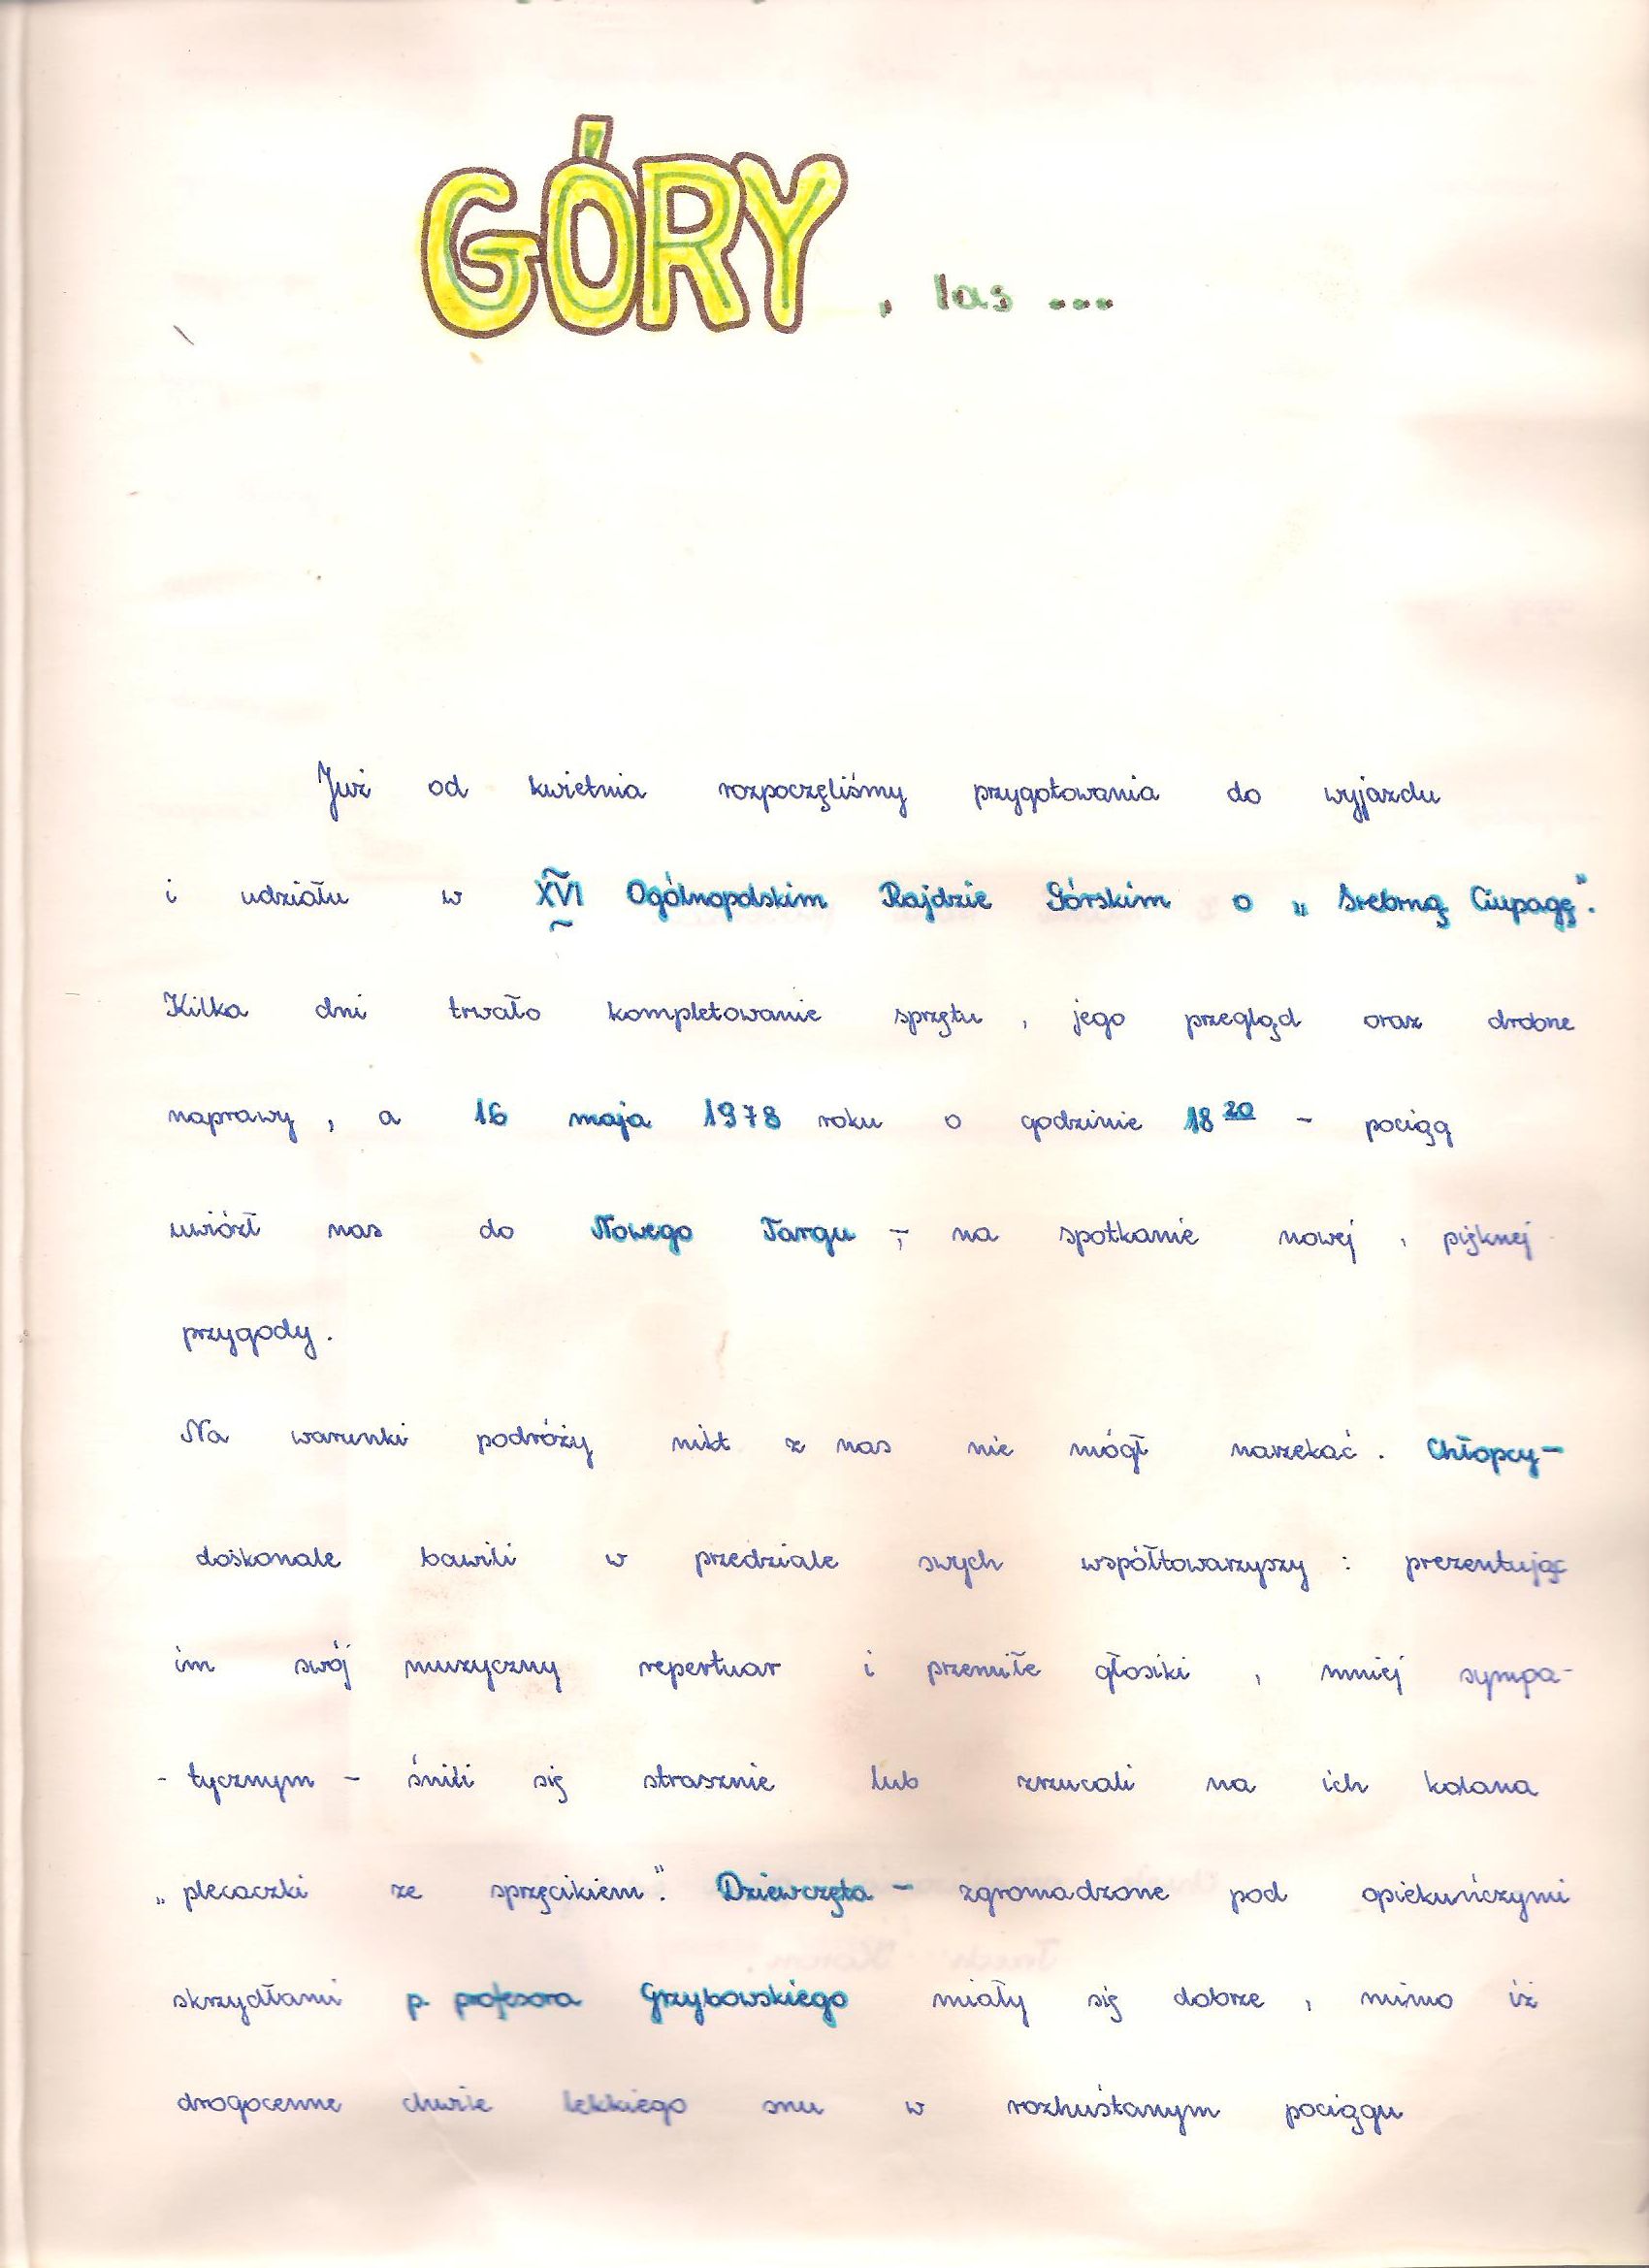 GÓRY, las ...
Już od kwietnia rozpoczęliśmy przygotowania do wyjazdu
i udziału w XVI Ogólnopolskim Rajdzie Górskim o „Srebrną Ciupagę".
Kilka dni trwało kompletowanie sprzętu, jego przegląd oraz drobne
naprawy, a 16 maja 1978 roku o godzinie 18 20 - pociąg
uwiózł nas do Nowego Targu - na spotkanie nowej, pięknej
przygody.
Na warunki podróży nikt z nas nie mógł narzekać. Chłopcy-
doskonale bawili w przedziale swych współtowarzyszy: prezentując
im swój muzyczny repertuar i przemiłe głosiki, mniej sympa-
- tycznym - śnili się strasznie lub zrzucali na ich kolana
„plecaczki ze sprzęcikiem." Dziewczęta - zgromadzone pod opiekuńczymi
skrzydłami p. profesora Grzybowskiego miały się dobrze, mimo iż
drogocenne chwile lekkiego snu w rozhuśtanym pociągu